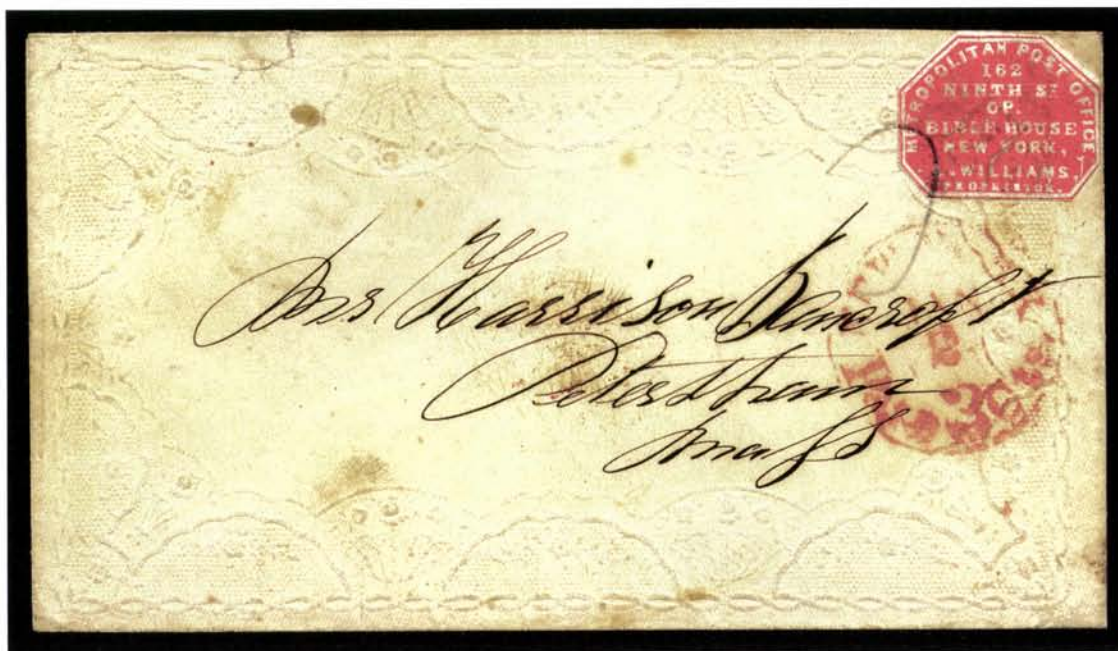 METROPOLITAN POST OFFICE
162
NINTH ST
OP.
BIBLE HOUSE
NEW YORK,
WILLIAMS,
PROPRIETOR.
Mrs Harrison Bancroft
Petersham
Mass